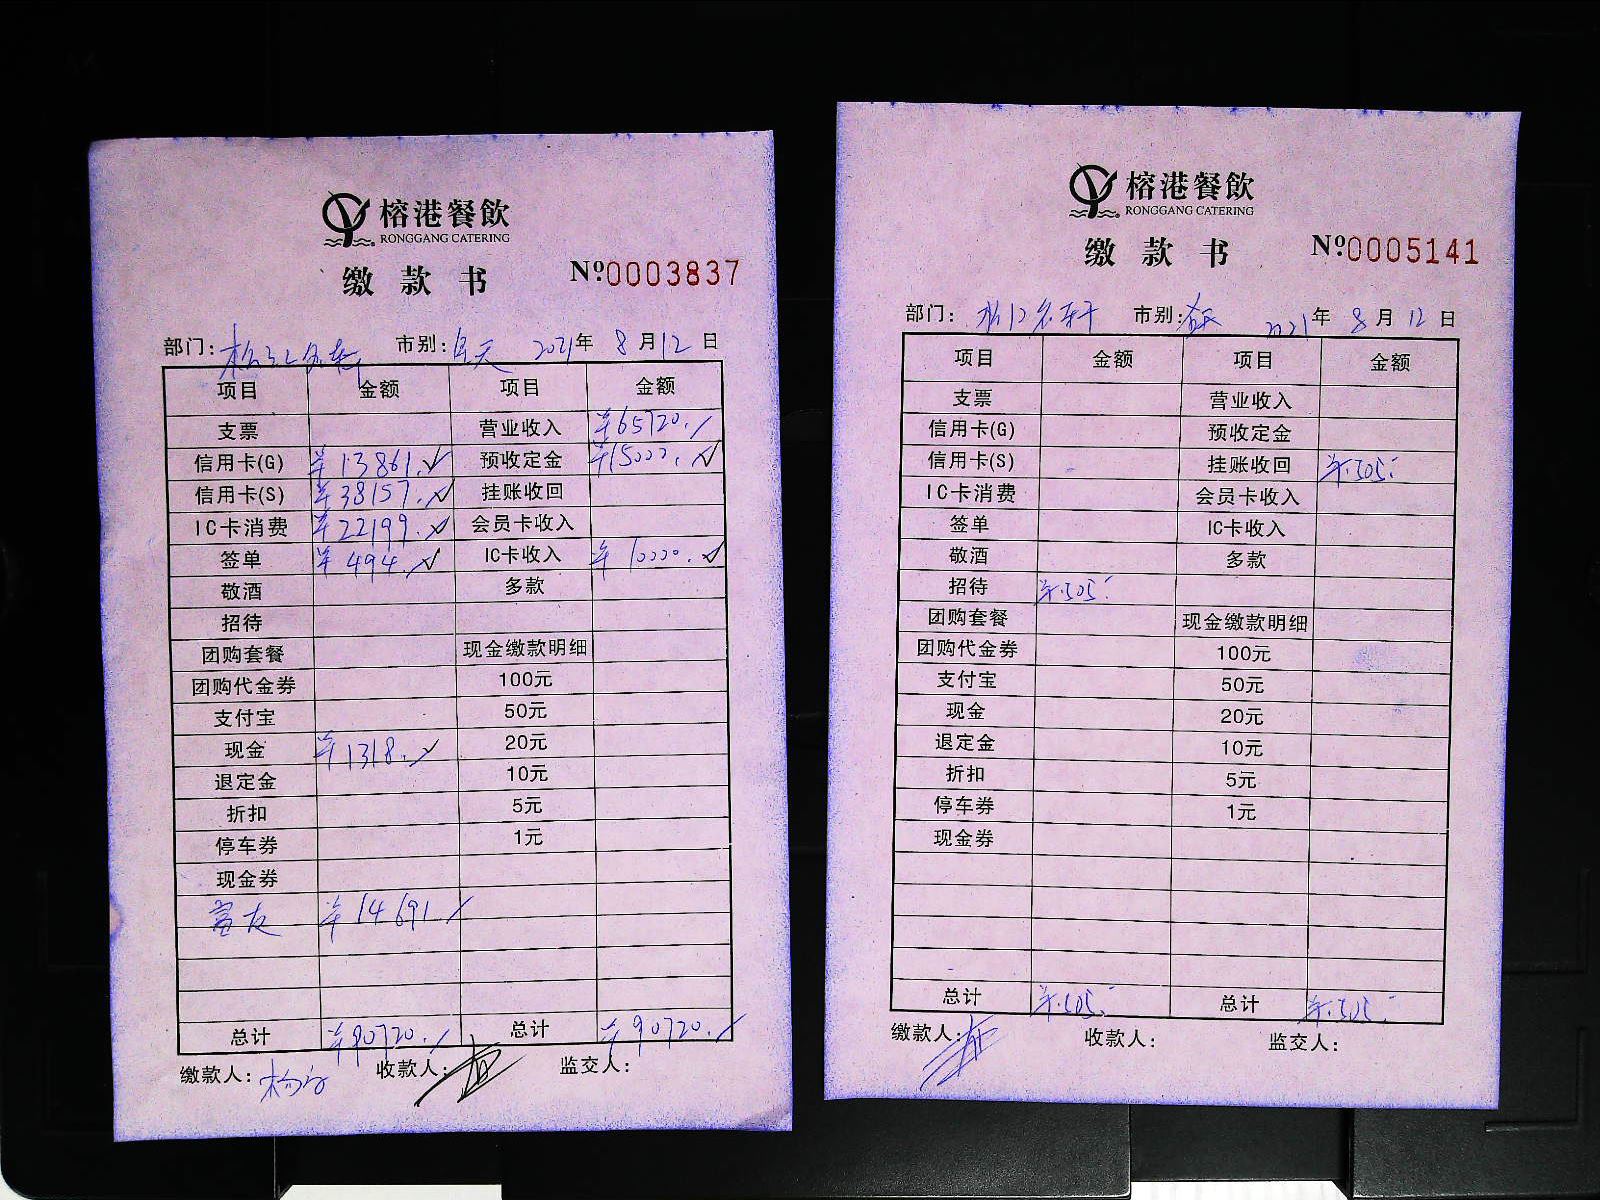 榕港餐飲
RONGGANG CATERING
缴款书 №0003837
部门: 市别: 全天 2021年 8月12日
项目 金额 项目 金额
支票 营业收入 ¥65720.
信用卡(G) ¥13861. 预收定金 ¥15000.
信用卡(S) ¥38157. 挂账收回
IC卡消费 ¥22199. 会员卡收入
签单 ¥494. IC卡收入 ¥10000.
敬酒 多款
招待
团购套餐 现金缴款明细
团购代金券 100元
支付宝 50元
现金 ¥1318. 20元
退定金 10元
折扣 5元
停车券 1元
现金券
富友 ¥14691.
总计 ¥90720. 总计 ¥90720.
缴款人: 收款人: 监交人:
榕港餐飲
RONGGANG CATERING
缴款书 №0005141
部门: 市别: 2021年 8月12日
项目 金额 项目 金额
支票 营业收入
信用卡(G) 预收定金
信用卡(S) 挂账收回 ¥505.
IC卡消费 会员卡收入
签单 IC卡收入
敬酒 多款
招待 ¥505.
团购套餐 现金缴款明细
团购代金券 100元
支付宝 50元
现金 20元
退定金 10元
折扣 5元
停车券 1元
现金券
总计 ¥505. 总计 ¥505.
缴款人: 收款人: 监交人: